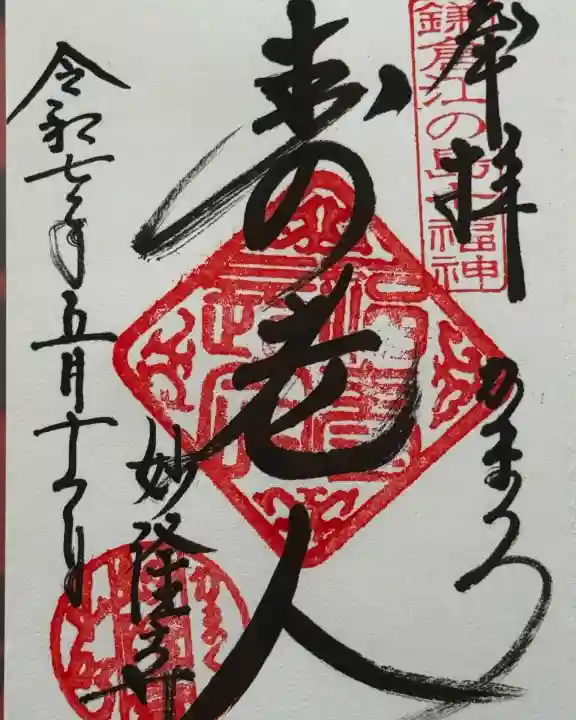 奉拝
鎌倉江の島七福神
かまくら
寿老人
妙隆寺
令和七年五月十六日
かまくら